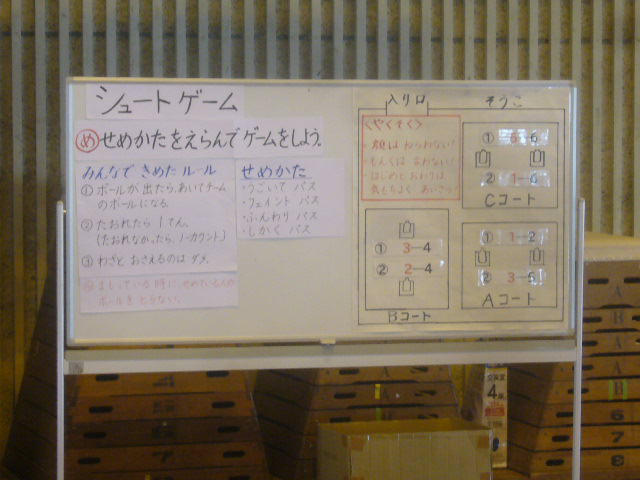 シュートゲーム
め せめかたをえらんでゲームをしよう。
みんなできめたルール
① ボールが出たら、あいてチーム
のボールになる。
② たおれたら1てん。
(たおれなかったら、ノーカウント)
③ わざとおさえるのはダメ。
④ まもっている時に、せめている人の
ボールをとらない。
せめかた
・うごいてパス
・フェイントパス
・ふんわりパス
・しかくパス
入り口
そうこ
<やくそく>
・顔はねらわない!
・もんくは言わない!
・はじめとおわりは
気もちよくあいさつ!
① 6-6
② 1-6
Cコート
① 3-4
② 2-4
Bコート
① 1-2
② 3-5
Aコート
4
A
A
B
6
7
8